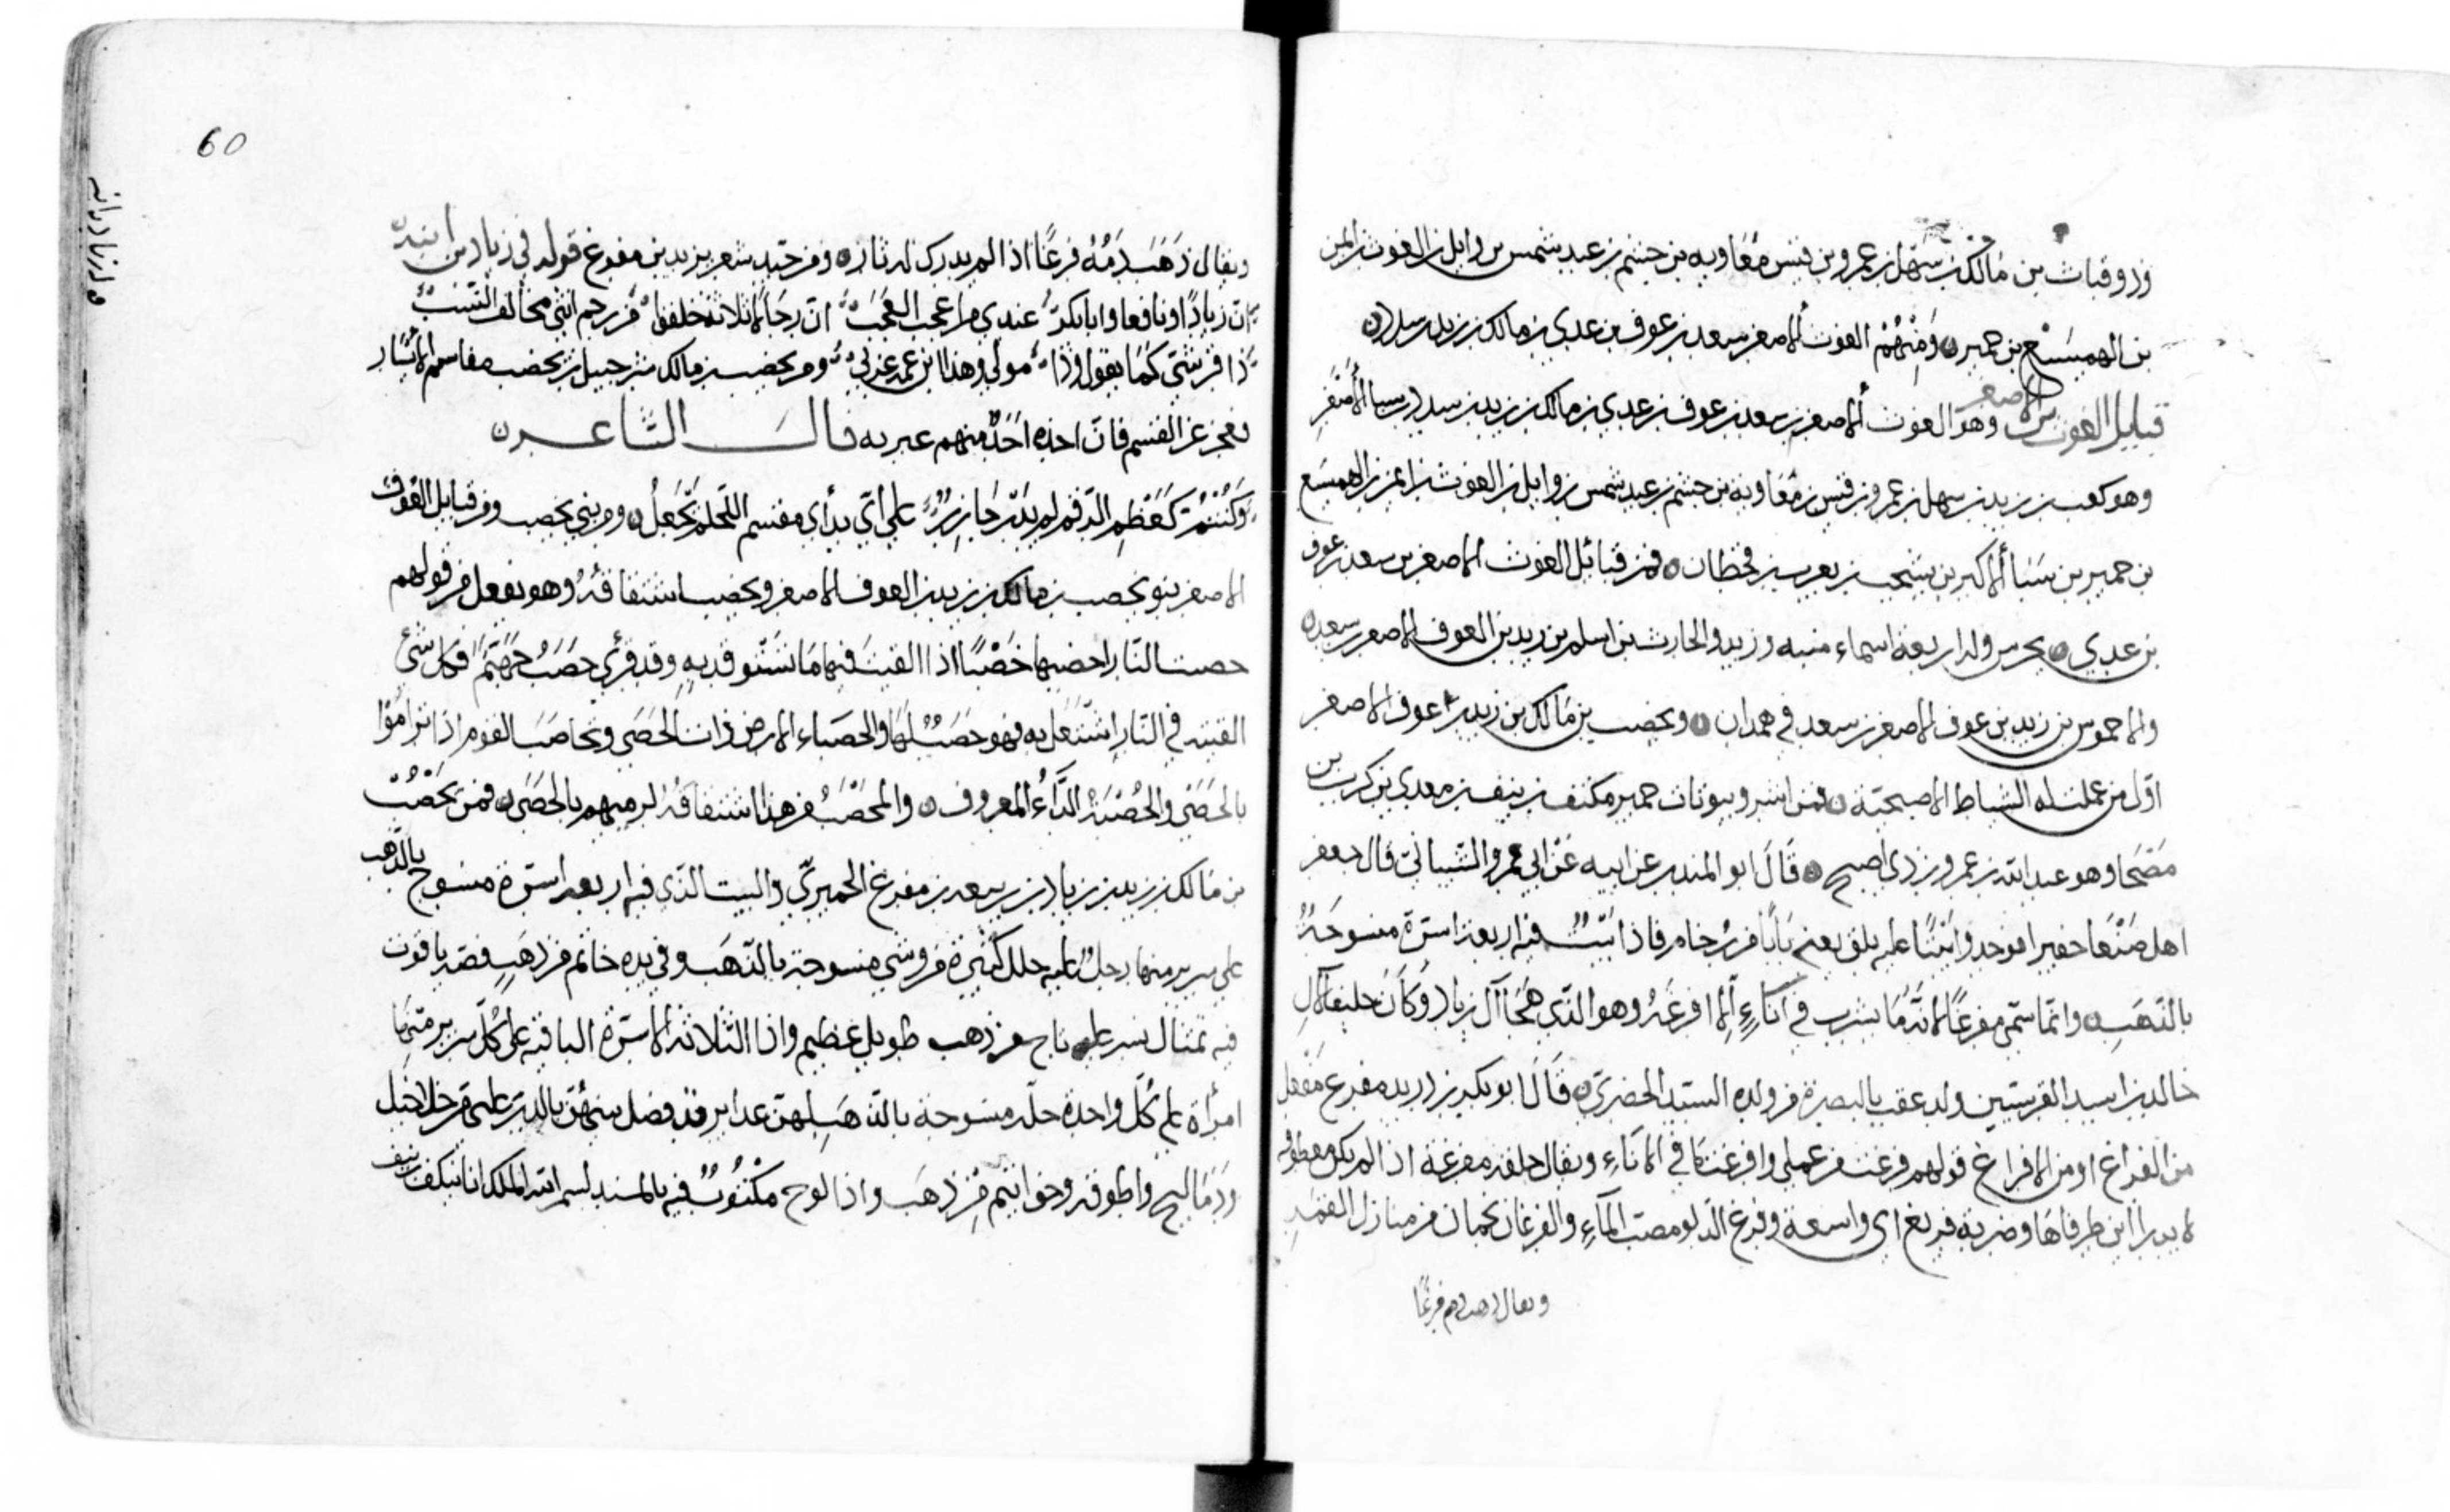 وذو قباث بن مالك بن سهل بن عمرو بن قيس بن معاوية بن جشم بن عبد شمس بن وايل بن الغوث بن ايمن
بن الهميسع بن حمير ه ومنهم الغوث الاصغر بن سعد بن عوف بن عدي بن مالك بن زيد بن سدد ه
قبايل الغوث الاصغر وهو الغوث الاصغر بن سعد بن عوف بن عدي بن مالك بن زيد بن سدد بن سبا الاصغر
وهو كعب بن زيد بن سهل بن عمرو بن قيس بن معاوية بن جشم بن عبد شمس بن وايل بن الغوث بن ايمن بن الهميسع
بن حمير بن سبأ الاكبر بن يشجب بن يعرب بن قحطان ه فمن قبائل الغوث الاصغر بن سعد بن عوف
بن عدي ه ولد اربعة اسماء منبه وزيد والحارث بن اسلم بن زيد بن الغوث الاصغر بن سعد ه
والاحموس بن زيد بن عوف الاصغر بن سعد في همدان ه ويحضب بن مالك بن زيد بن عوف الاصغر
اول من عملت له السياط الاصبحية ه فمن اشر وبيوتات حمير مكنف بن ينيف بن معدي كرب بن
مضحا وهو عبد الله بن عمرو بن ذي اصبح ه قال ابو المنذر عن ابيه عن ابي عمرو الشيباني قال حفر
اهل صنعا حفيرا فوجدوا بيتا عليه بلق يعني بابا من رخام فاذا بيت فيه اربعة اسرة منسوجة
بالذهب ه وانما سمي مفرغا لانه ما شرب في اناء الا افرغه وهو الذي هجا آل زياد وكان حليفا لآل
خالد بن اسيد القرشيين وله عقب بالبصرة من ولده السيد الحضري ه قال ابو بكر بن دريد مفرغ مفعل
من الفراغ او من الافراغ قولهم فرغت من عملي وافرغت ما في الاناء ويقال حلقة مفرغة اذا لم يكن معطوفه
لا يدرا اين طرفاها وضربة فريغ اي واسعة وفرغ الدلو مصب الماء والفرغان نجمان من منازل القمر
ويقال ذهب دمه فرغا
60
ويقال ذهب دمه فرغا اذا لم يدرك له ثاره ومن جيد شعر يزيد بن مفرغ قوله في زياد بن ابيه
ان زيادا ونافعا وابا بكرة عندي من اعجب العجب ان رجالا ثلاثة خلقوا من رحم انثى مخالف النسب
ذا قرشي كما يقول وذا مولى وهذا ابن عمه عربي ومن يحضب بن مالك شرحبيل بن يحضب مقاسم الايسار
يعجز عن القسم فان اخذه احد منهم عير به قال الشاعر ه
وكنتم كعظم الريم لم يدر جازر على أي بدأي مقسم اللحم يجعل ه ومن بني يحصب ومن قبايل الغوث
الاصغر بنو يحصب بن مالك بن زيد بن العوف الاصغر ويحصب اشتقاقه وهو يفعل من قولهم
حصبت النار احضبها خضبا اذا القيت فيها ما تستوقد به وقد قرئ حصب جهنم فكل شيء
القيته في النار اشتعل به فهو حصب لها والحصباء الارض ذات الحصى وتحاصب القوم اذا تراموا
بالحصى والحصبة الداء المعروف ه والمحصب من هذا اشتقاقه لرميهم بالحصى ه فمن يحصب
بن مالك بن زيد بن زياد بن ربيعة بن مفرغ الحميري والبيت الذي فيه اربعة اسرة منسوج بالذهب
على سرير منها رجل عليه حلل كثيرة من وشي منسوجة بالذهب وفي يده خاتم من ذهب فصه ياقوت
فيه تمثال نسر عليه تاج من ذهب طويل عظيم واذا الثلاثة الاسرة الباقية على كل سرير منها
امرأة على كل واحدة حلة منسوجة بالذهب لهن غداير قد فصل بينهن بالدر عليهن من خلاخيل
ودماليج واطوقه وخواتيم من ذهب واذا لوح مكتوب فيه بالمسند بسم الله الملك انا مكنف بن ينيف